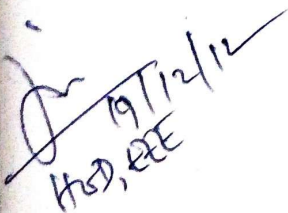 19/12/12
HOD, EEE